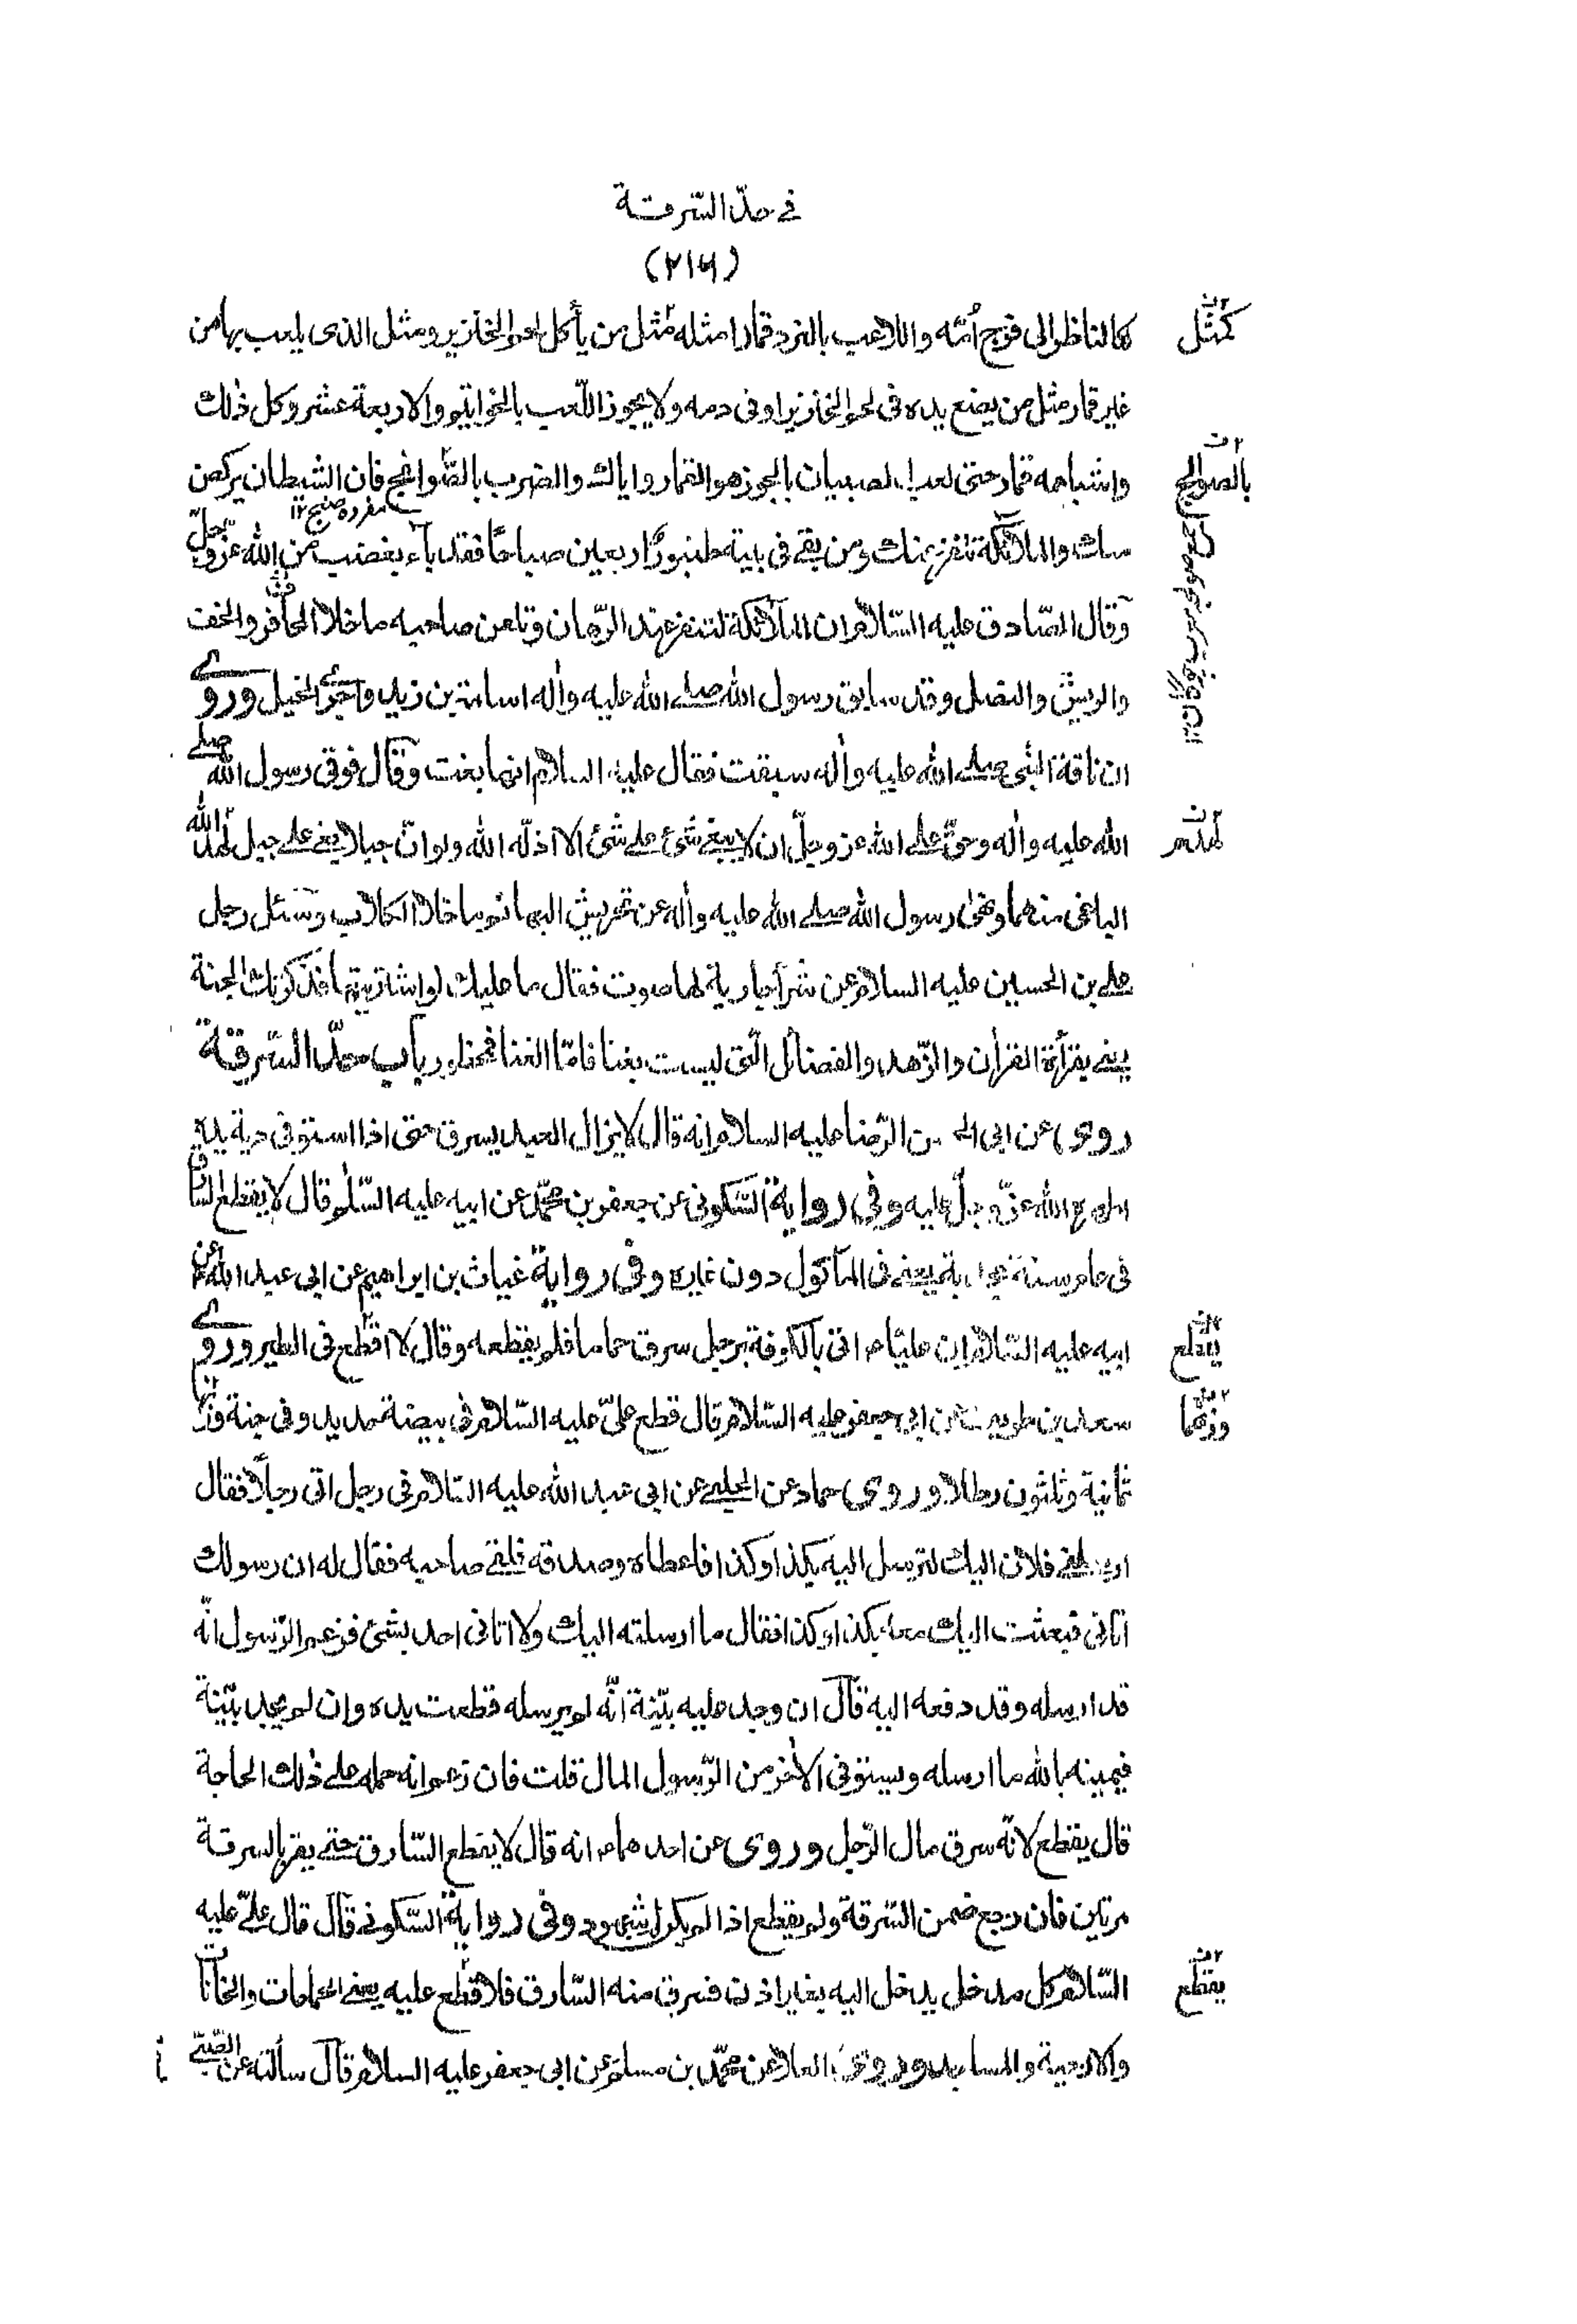 في حدّ السّرقة
(٢١٦)
كالناظر الى فرج اُمّه واللاعب بالنرد قمارا مثله مثل من يأكل لحم الخنزير ومثل الذى يلعب بها من
غير قمار مثل من يضع يده فى لحم الخنزير او فى دمه ولا يجوز اللّعب بالخواتيم والاربعة عشر وكل ذٰلك
واشباهه قمار حتى لعب الصبيان بالجوز هو القمار واياك والضرب بالصّوانج فان الشيطان يركض
معك والملائكة تنفر عنك ومن بقى فى بيته طنبورًا اربعين صباحًا فقد باء بغضب من الله عزّ وجلّ
وقال الصّادق عليه السّلام ان الملآئكة لتنفر عند الرّهان وتلعن صاحبه ما خلا الحافر والخف
والريش والنصل وقد سابق رسول الله صلى الله عليه واٰله اسامة بن زيد واجرى الخيل وروى
ان ناقة النبى صلى الله عليه واٰله سبقت فقال عليه السلام انها بغت وقال فوقى رسول الله صلى
الله عليه واٰله وحقّ على الله عز وجلّ ان لا يبغى شئ على شئ الا اذلّه الله ولو انّ جبلا بغى على جبل لهدّ الله
الباغى منهما ونهى رسول الله صلى الله عليه واٰله عن تحريش البهائم ما خلا الكلاب وسئل رجل
على بن الحسين عليه السلام عن شرآء جارية لها صوت فقال ما عليك لو اشتريتها فذكرتك الجنة
يعنى بقرآءة القرآن والزّهد والفضائل الّتى ليست بغنا فامّا الغنا فمحظور باب حدّ السّرقة
روى عن ابى الحسن الرّضا عليه السلام انه قال لا يزال العبد يسرق حتى اذا استوفى دية يده
اظهره الله عزّ وجلّ عليه وفى رواية السّكونى عن جعفر بن محمّد عن ابيه عليه السّلم قال لا يقطع السارق
فى عام سنة مجدبة يعنى فى المأكول دون غيره وفى رواية غياث بن ابراهيم عن ابى عبد الله عن
ابيه عليه السّلام ان عليّا ع اتى بالكوفة برجل سرق حماما فلم يقطعه وقال لا اقطع فى الطير وروى
سعد بن طريف عن ابى جعفر عليه السّلام قال قطع علىّ عليه السّلام فى بيضة حديد وفى جنة وزنها
ثمانية وثلثون رطلا وروى حماد عن الحلبى عن ابى عبد الله عليه السّلام فى رجل اتى رجلًا فقال
ارسلنى فلان اليك لترسل اليه بكذا وكذا فاعطاه وصدقه فلقى صاحبه فقال له ان رسولك
اتانى فبعثت اليك معه بكذا وكذا فقال ما ارسلته اليك ولا اتانى احد بشئ فزعم الرّسول انّه
قد ارسله وقد دفعه اليه قال ان وجد عليه بيّنة انّه لم يرسله قطعت يده وان لم يجد بيّنة
فيمينه بالله ما ارسله ويستوفى الآخر من الرّسول المال قلت فان زعم انه حمله على ذٰلك الحاجة
قال يقطع لانّه سرق مال الرّجل وروى عن احدهما ع انه قال لا يقطع السّارق حتى يقر بالسرقة
مرتين فان رجع ضمن السّرقة ولم يقطع اذا لم يكن شهود وفى رواية السّكونى قال قال علىّ عليه
السّلام كل مدخل يدخل اليه بغير اذن فسرق منه السّارق فلا قطع عليه يعنى الحمامات والخانات
والارحية والمساجد وروى العلا عن محمّد بن مسلم عن ابى جعفر عليه السلام قال سألته عن الصّبىّ
كمثل
بالصوالج
جمع صولجه معرب چوگان ١٢
مفرده صنج ١٢
يقطع
وزنهما
يقطع